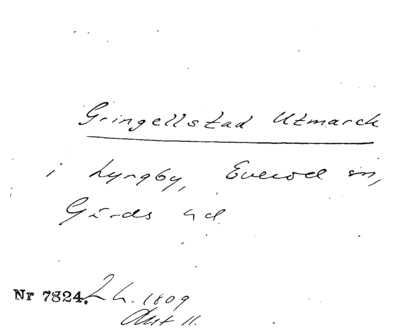 Gringellstad Utmarck
i Lyngby, Everöd sn,
Gärds hd
Nr 7824. L h. 1809
Akt 11.